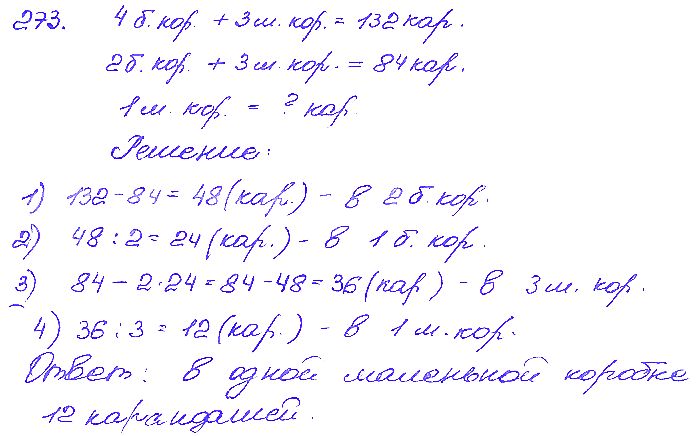 273. 4 б. кор. + 3 м. кор. = 132 кар.
2 б. кор. + 3 м. кор. = 84 кар.
1 м. кор. = ? кар.
Решение:
1) 132 - 84 = 48 (кар.) - в 2 б. кор.
2) 48 : 2 = 24 (кар.) - в 1 б. кор.
3) 84 - 2·24 = 84 - 48 = 36 (кар) - в 3 м. кор.
4) 36 : 3 = 12 (кар.) - в 1 м. кор.
Ответ: в одной маленькой коробке
12 карандашей.